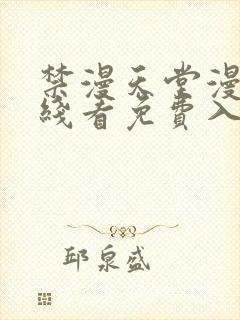 禁漫天堂漫
线看免費入
邱泉盛